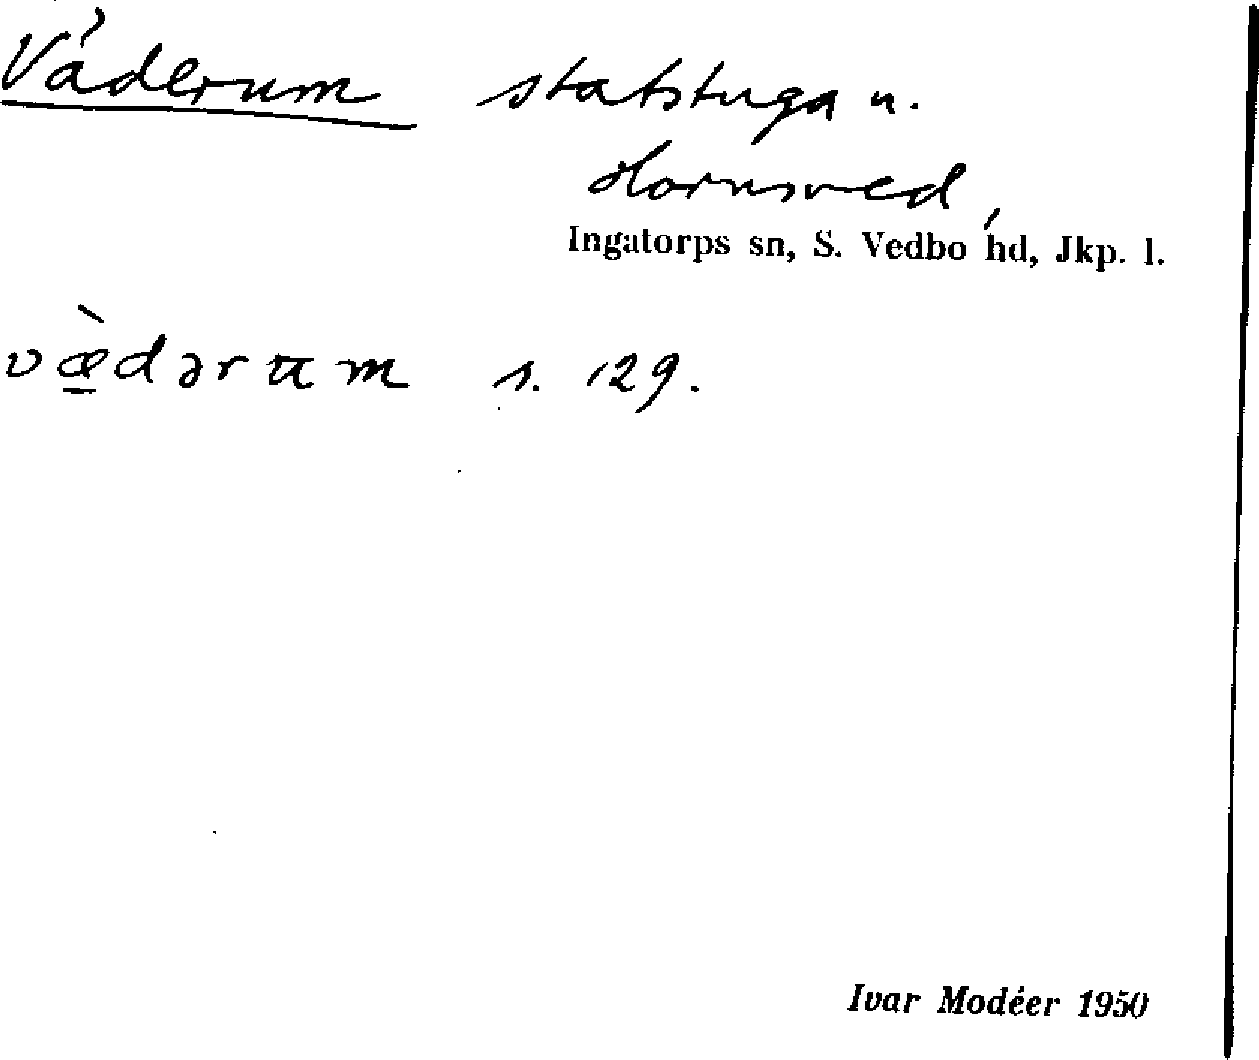 Väderum statstuga u.
Hornsved,
Ingatorps sn, S. Vedbo hd, Jkp. l.
væ̲̀dərum s. 129.
Ivar Modéer 1950